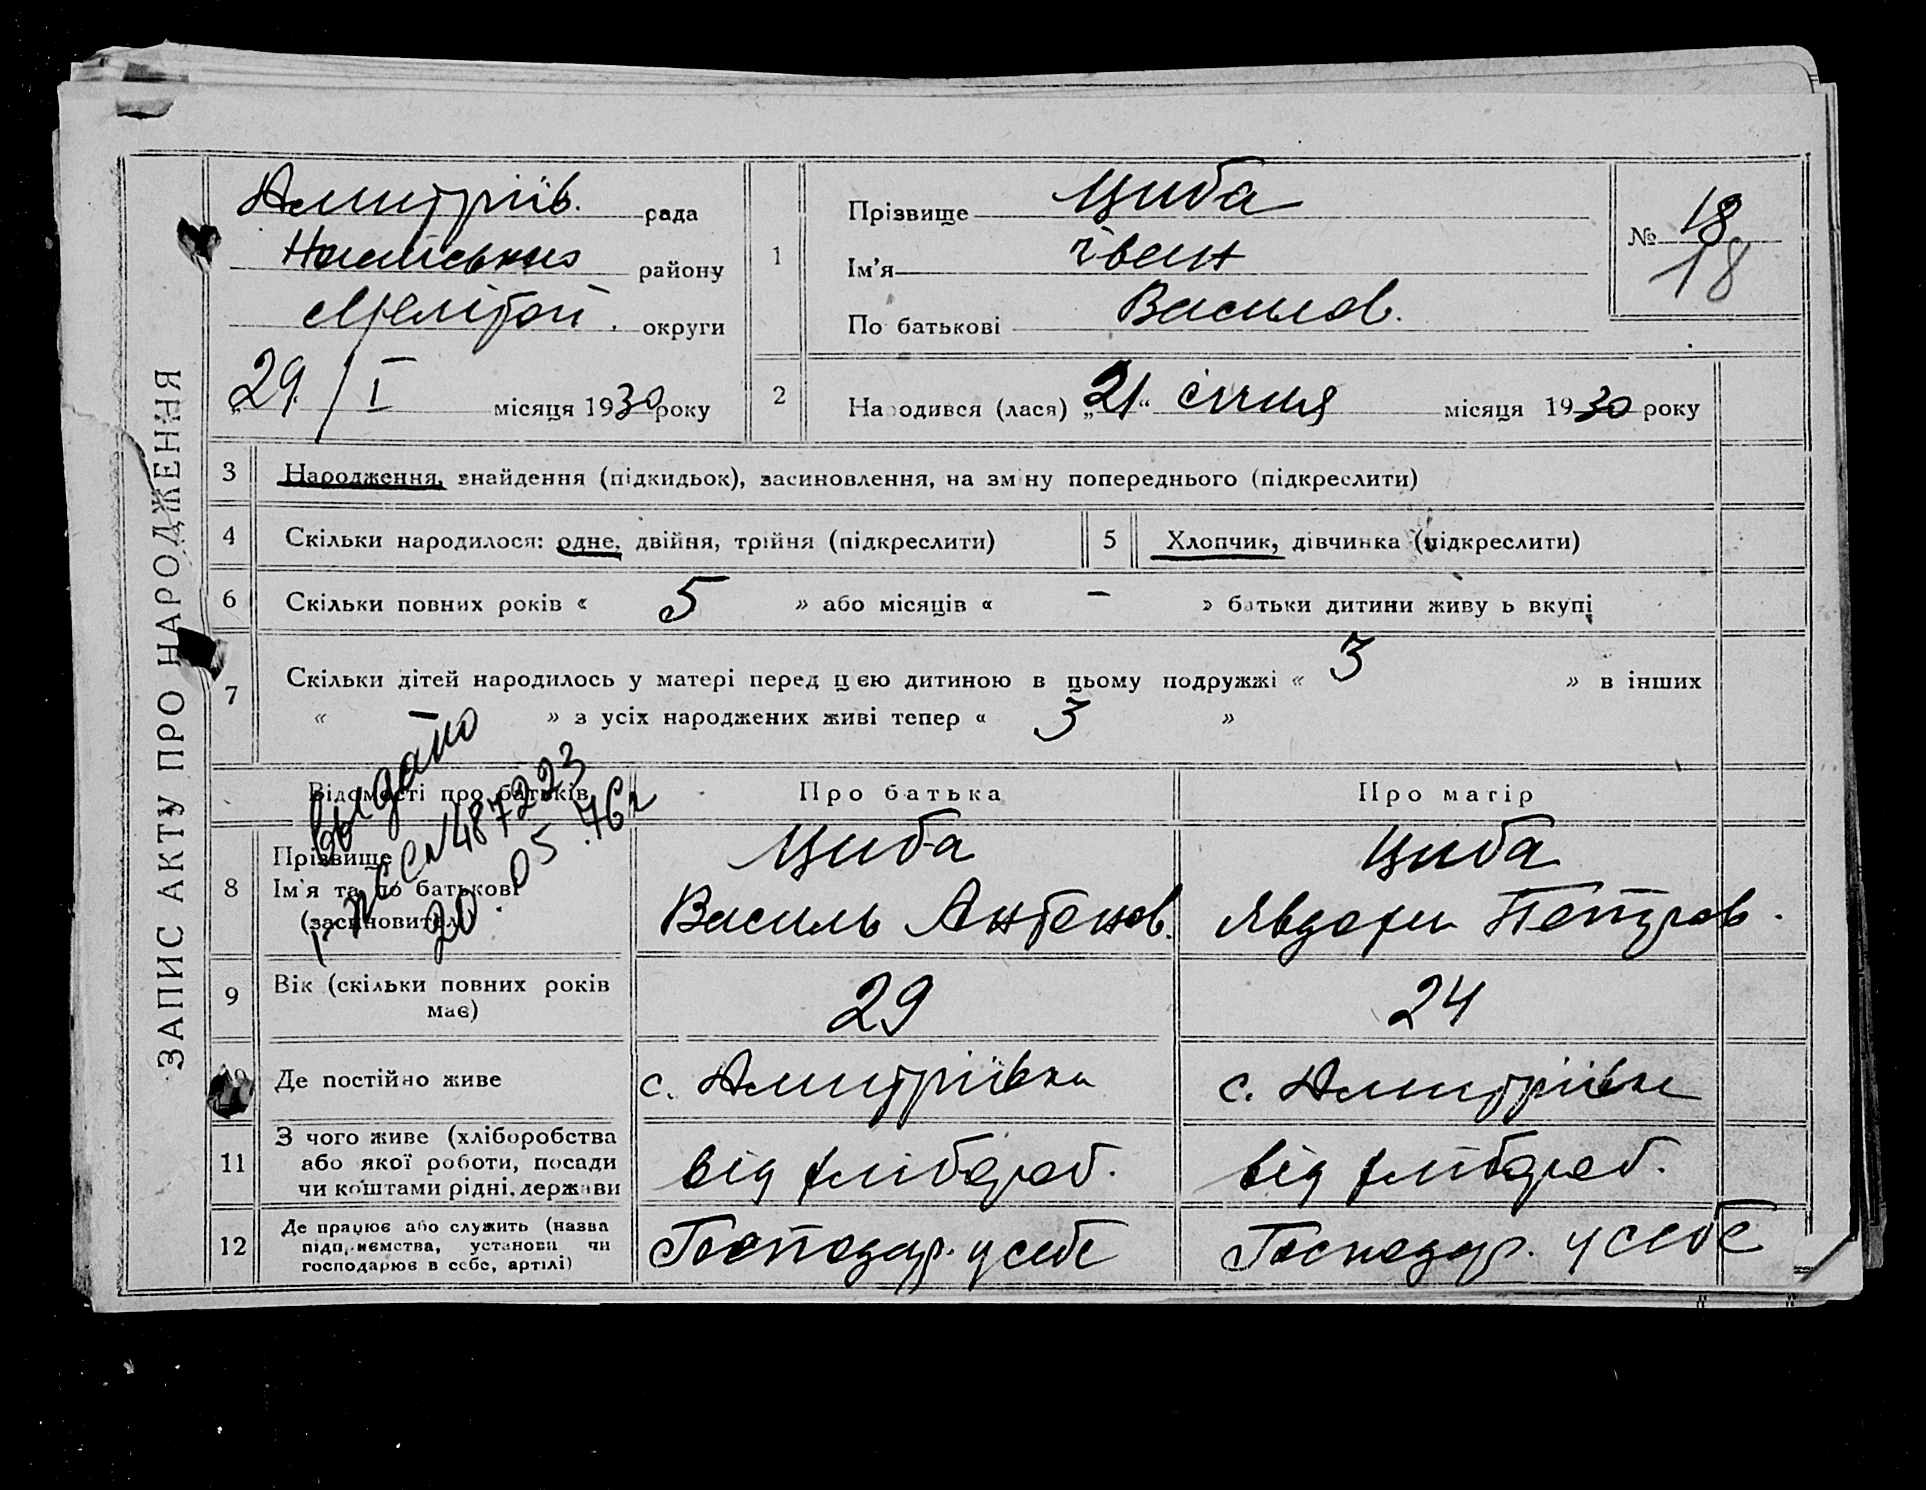 ЗАПИС АКТУ ПРО НАРОДЖЕННЯ
Дмитріїв. рада
району
Мелітоп. округи
„29/I місяця 1930 року
1
Прізвище Циба
Ім'я Іван
По батькові Василов.
№ 18
18
2
Народився (лася) „21“ січня місяця 1930 року
3 Народження, знайдення (підкидьок), засиновлення, на зміну попереднього (підкреслити)
4 Скільки народилося: одне, двійня, трійня (підкреслити)
5 Хлопчик, дівчинка (підкреслити)
6 Скільки повних років « 5 » або місяців « – » батьки дитини живуть вкупі
7 Скільки дітей народилось у матері перед цією дитиною в цьому подружжі « 3 » в інших
« » з усіх народжених живі тепер « 3 »
Відомості про батьків
Про батька
Про матір
выдано
№ 487223
20.05.76г
8
Прізвище
Ім'я та по батькові
(засиновител)
Циба
Василь Антонов.
Циба
Явдоха Петров.
9 Вік (скільки повних років
має)
29
24
10 Де постійно живе
с. Дмитрівка
с. Дмитрівка
11
З чого живе (хліборобства
або якої роботи, посади
чи коштами рідні, держави
від хлібороб.
від хлібороб.
12
Де працює або служить (назва
підприємства, установи чи
господарює в себе, артілі)
Господар. у себе
Господар. у себе